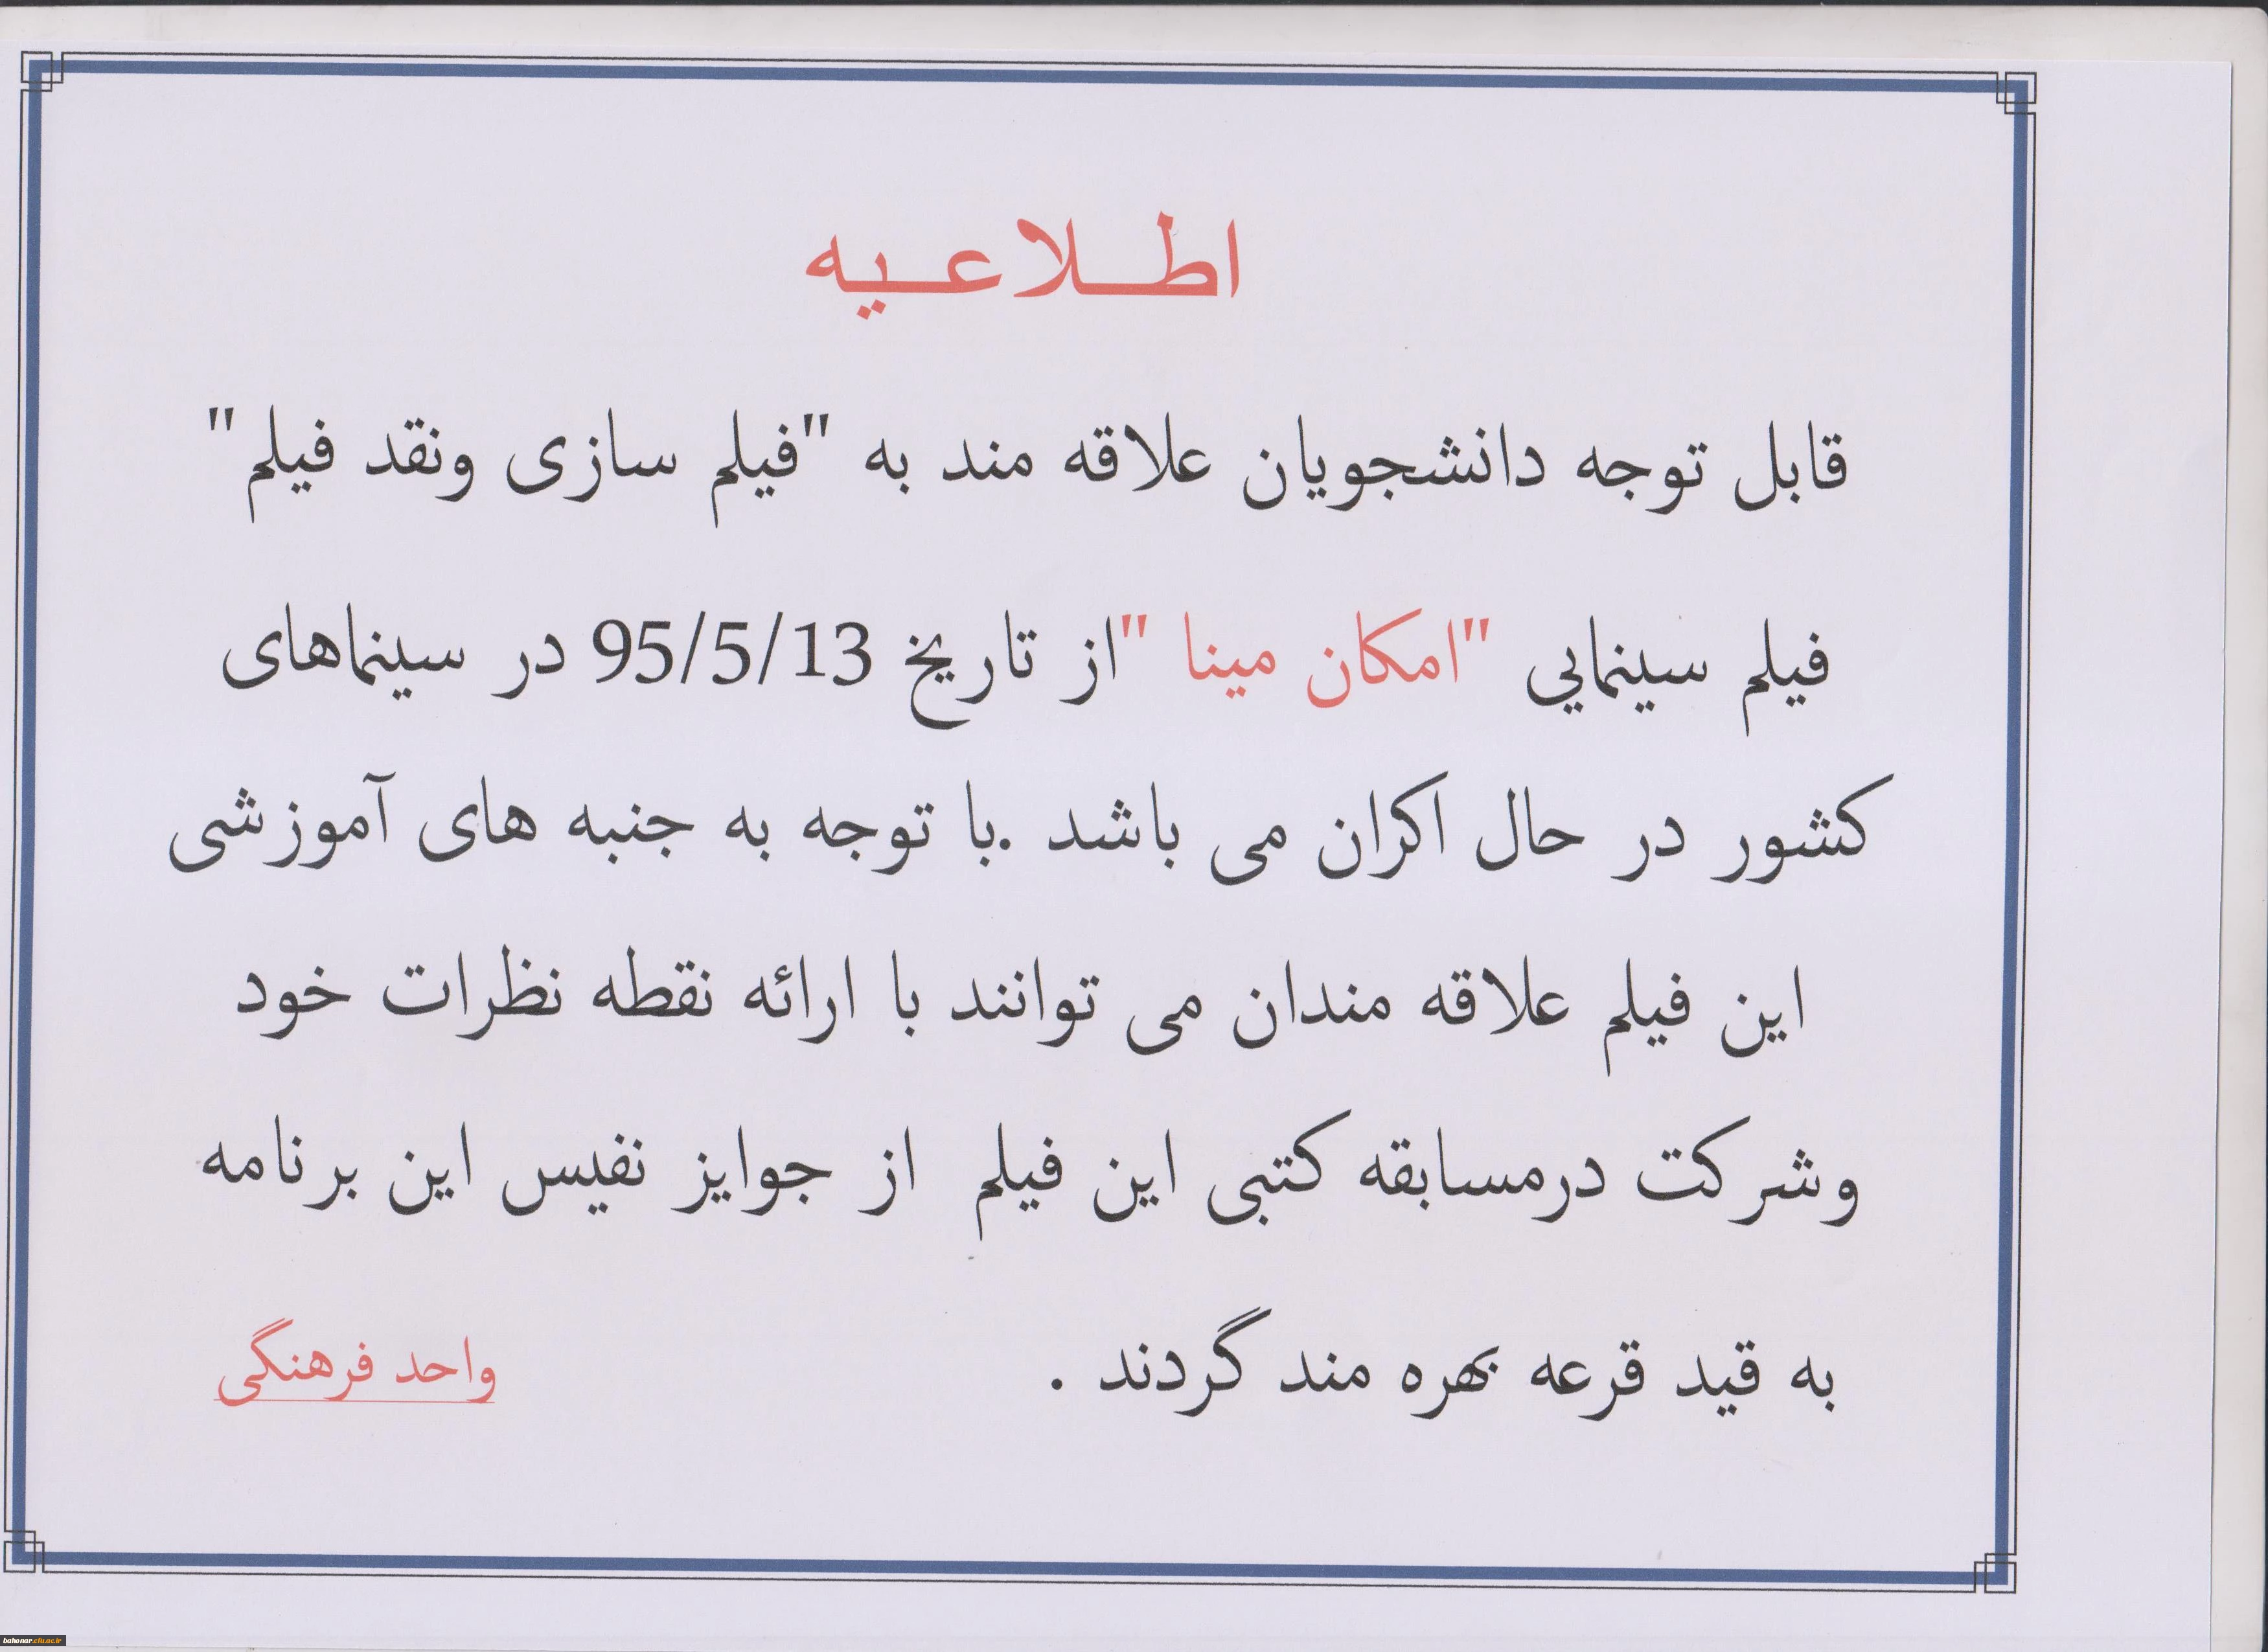 اطلاعیه
قابل توجه دانشجویان علاقه مند به "فیلم سازی ونقد فیلم"
فیلم سینمایی "امکان مینا "از تاریخ 95/5/13 در سینماهای
کشور در حال اکران می باشد .با توجه به جنبه های آموزشی
این فیلم علاقه مندان می توانند با ارائه نقطه نظرات خود
وشرکت درمسابقه کتبی این فیلم از جوایز نفیس این برنامه
به قید قرعه بهره مند گردند .
واحد فرهنگی
bahonar.cfu.ac.ir